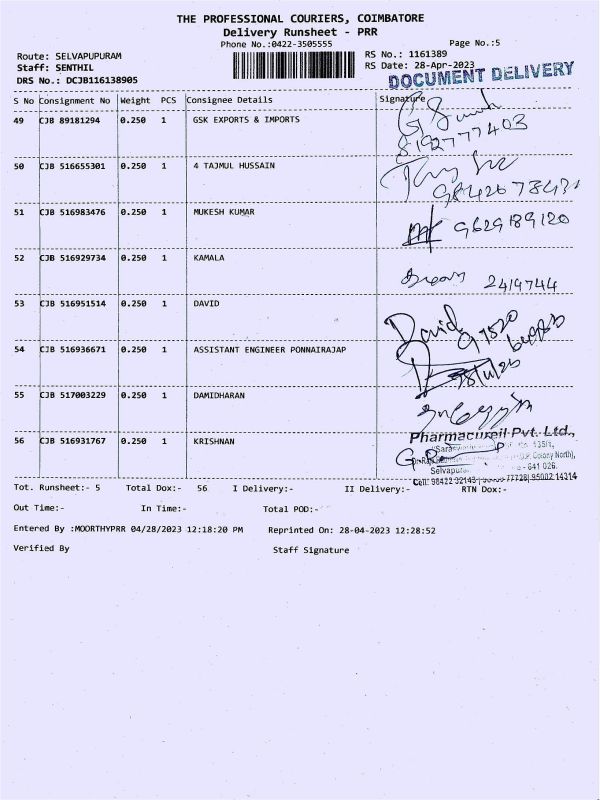 THE PROFESSIONAL COURIERS, COIMBATORE
Delivery Runsheet - PRR
Phone No.:0422-3505555
Page No.:5
Route: SELVAPUPURAM
RS No.: 1161389
Staff: SENTHIL
RS Date: 28-Apr-2023
DRS No.: DCJB116138905
DOCUMENT DELIVERY
S No Consignment No Weight PCS Consignee Details Signature
49 CJB 89181294 0.250 1 GSK EXPORTS & IMPORTS
8192777403
50 CJB 516655301 0.250 1 4 TAJMUL HUSSAIN
51 CJB 516983476 0.250 1 MUKESH KUMAR 9629189120
52 CJB 516929734 0.250 1 KAMALA 2419744
53 CJB 516951514 0.250 1 DAVID David
54 CJB 516936671 0.250 1 ASSISTANT ENGINEER PONNAIRAJAP
55 CJB 517003229 0.250 1 DAMIDHARAN
56 CJB 516931767 0.250 1 KRISHNAN
Pharmacureil Pvt. Ltd.,
Colony North),
641 026.
95002 14314
Tot. Runsheet:- 5 Total Dox:- 56 I Delivery:- II Delivery:- RTN Dox:-
Out Time:- In Time:- Total POD:-
Entered By :MOORTHYPRR 04/28/2023 12:18:20 PM Reprinted On: 28-04-2023 12:28:52
Verified By Staff Signature